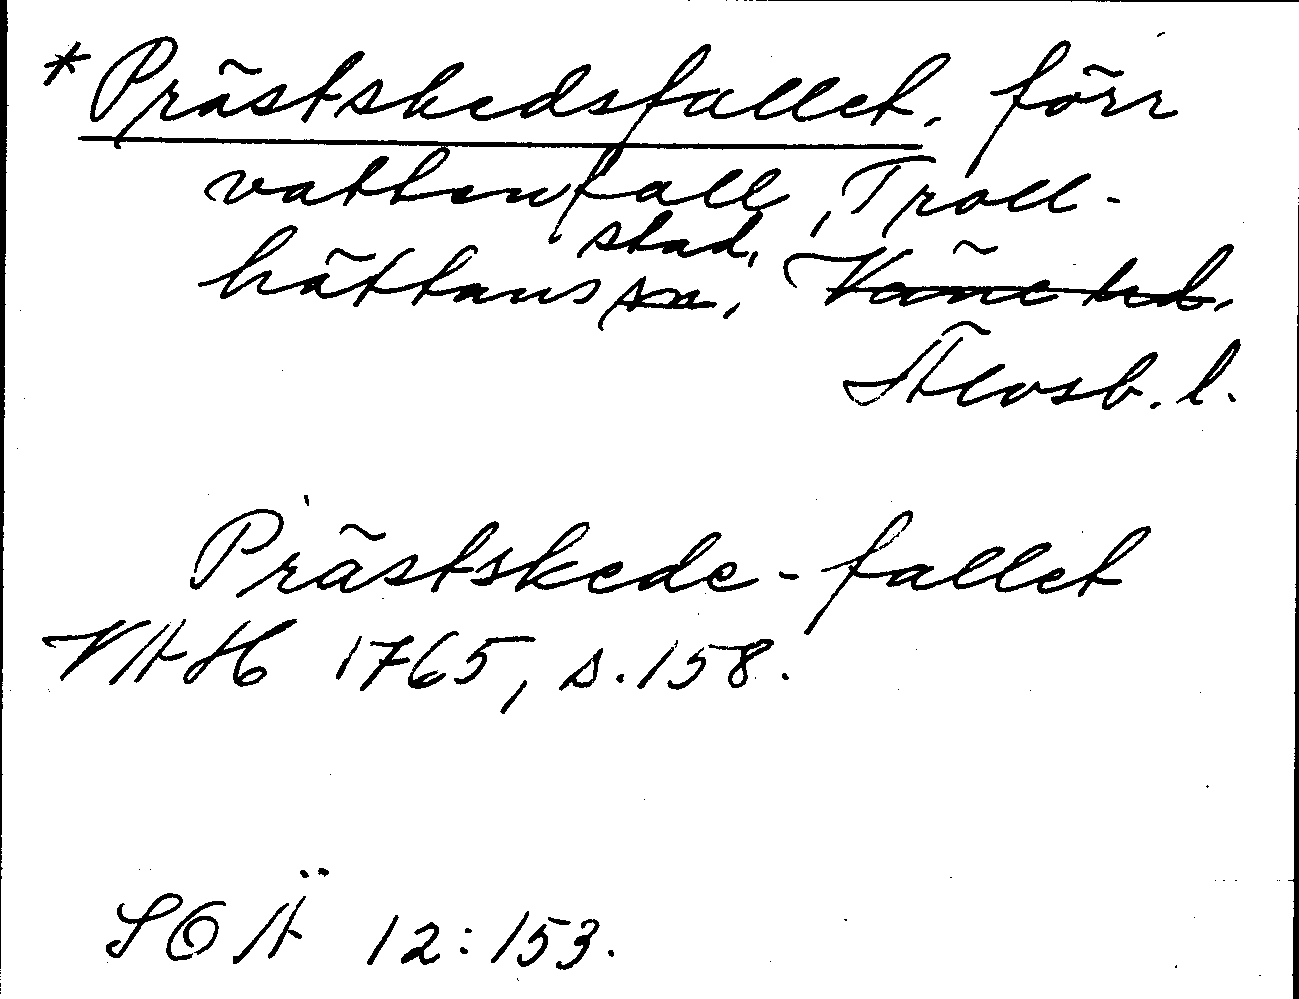 *Prästskedsfallet, förr
vattenfall, Troll-
stad,
hättans sn, Väne hd,
Älvsb. l.
Prästskede-fallet
VAH 1765, s. 158.
SOÄ 12:153.